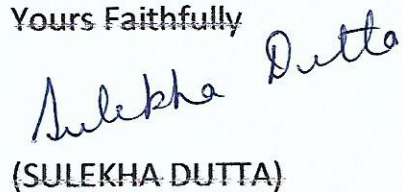 Yours Faithfully
Sulekha Dutta
(SULEKHA DUTTA)